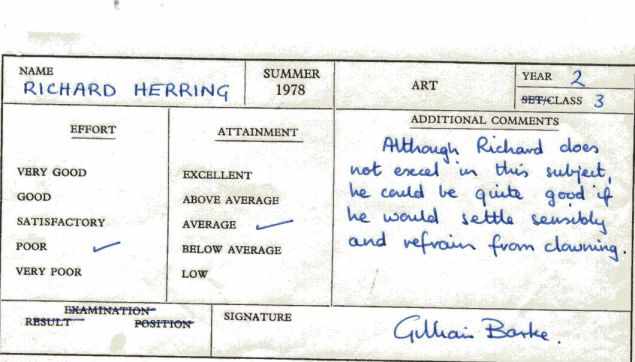 NAME
RICHARD HERRING
SUMMER
1978
ART
YEAR 2
SET/CLASS 3
EFFORT
VERY GOOD
GOOD
SATISFACTORY
POOR ✓
VERY POOR
ATTAINMENT
EXCELLENT
ABOVE AVERAGE
AVERAGE ✓
BELOW AVERAGE
LOW
ADDITIONAL COMMENTS
Although Richard does
not excel in this subject,
he could be quite good if
he would settle sensibly
and refrain from clowning.
EXAMINATION
RESULT POSITION
SIGNATURE
Gillian Barke.